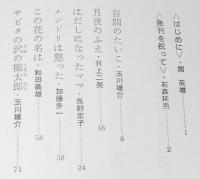 〈はじめに〉・関 英雄 1
〈発刊を祝って〉・石森延男 2
谷間のたいこ・玉川雄介 8
月夜のふえ・井上二美 18
はだしになったママ・長野京子 24
メンドリは怒った・加藤多一 38
この花の名は・和田義雄 58
サビタの沢の熊太郎・玉川雄介 71